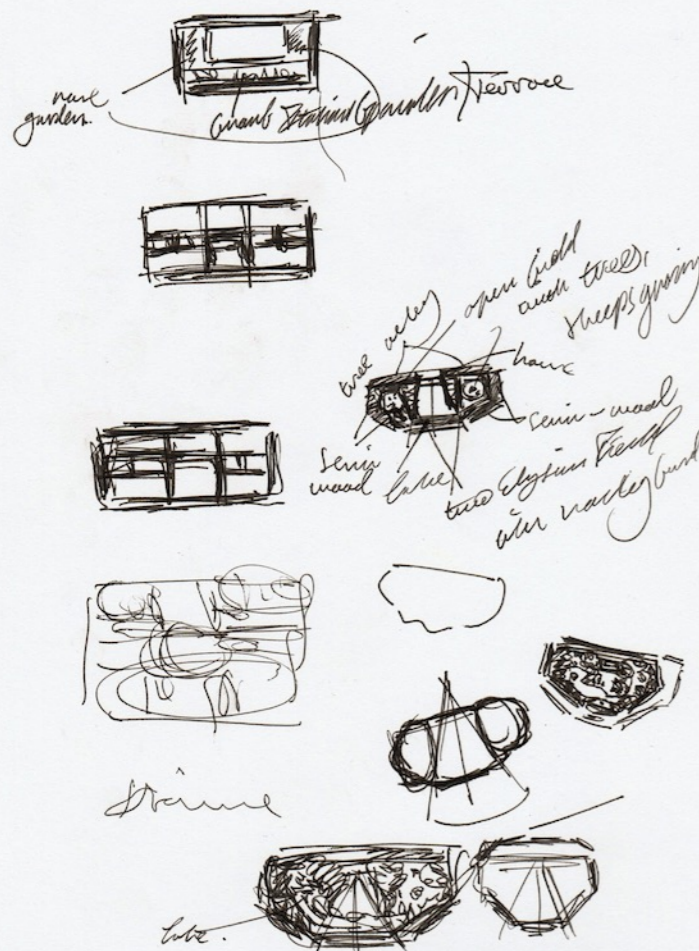 rose
garden.
Grand Italian Garden / Terrace
tree alley
open field
and trees,
sheeps grazing
house
semi-wood
semi
wood
lake
two Elysian Field
lake.